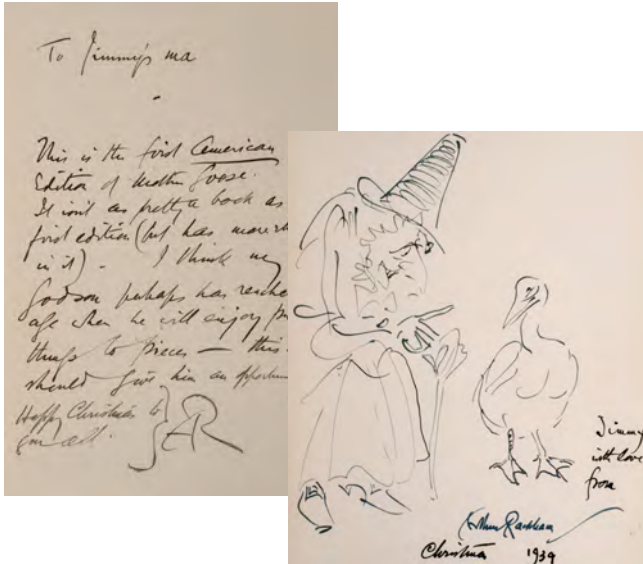 To Jimmy's ma
This is the first American
Edition of Mother Goose.
It isn't as pretty a book as
first edition (but has more
in it). I think my
Godson perhaps has reache
age when he will enjoy
things to pieces – this
should give him an
Happy Christmas to
you all.
AR
Jimmy
with love
from
Arthur Rackham
Christmas 1939